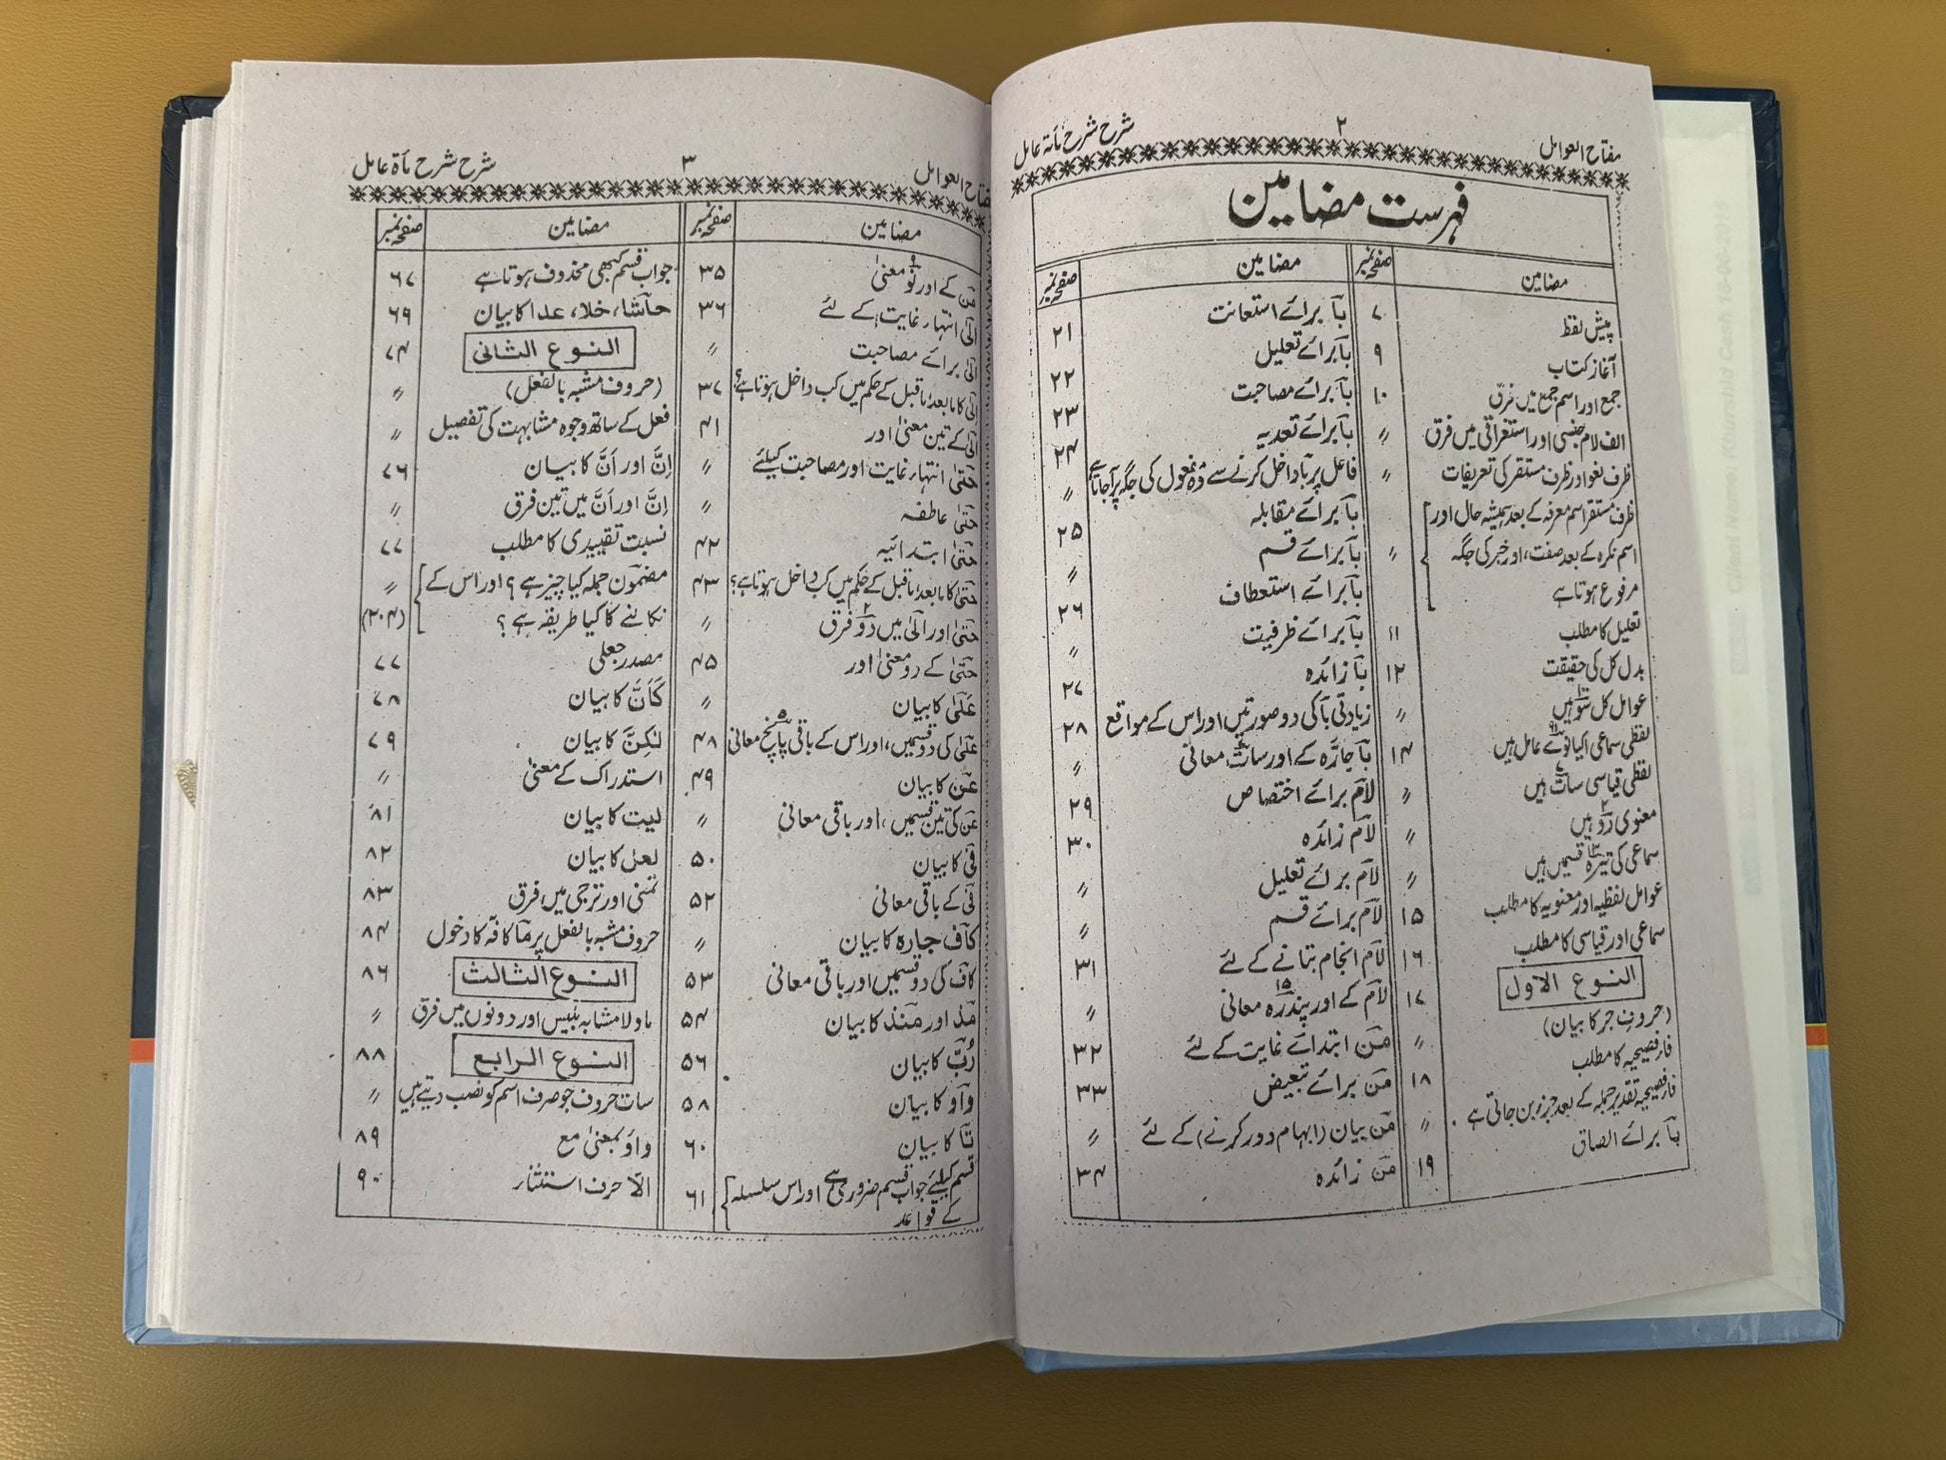 مفتاح العوامل
۲
شرح شرح مأۃ عامل
فہرست مضامین
مضامین
صفحہ نمبر
پیش لفظ
۷
آغاز کتاب
۹
جمع اور اسم جمع میں فرق
۱۰
الف لام جنسی اور استغراقی میں فرق
〃
ظرف لغو اور ظرف مستقر کی تعریفات
〃
ظرف مستقر اسم معرفہ کے بعد ہمیشہ حال اور
اسم نکرہ کے بعد صفت، اور خبر کی جگہ
〃
مرفوع ہوتا ہے
تعلیل کا مطلب
۱۱
بدل کل کی حقیقت
۱۲
عوامل کل سو ہیں
〃
لفظی سماعی اکیانوے عامل ہیں
۱۴
لفظی قیاسی سات ہیں
〃
معنوی دو ہیں
〃
سماعی کی تیرہ قسمیں ہیں
〃
عوامل لفظیہ اور معنویہ کا مطلب
۱۵
سماعی اور قیاسی کا مطلب
۱۶
النوع الاول
۱۷
(حروف جر کا بیان)
〃
فاء فصیحیہ کا مطلب
۱۸
فاء فصیحیہ تقدیر جملہ کے بعد جزء بن جاتی ہے
〃
بآ برائے الصاق
۱۹
مضامین
صفحہ نمبر
بآ برائے استعانت
۲۱
بآ برائے تعلیل
۲۲
بآ برائے مصاحبت
۲۳
بآ برائے تعدیہ
۲۴
فاعل پر بآ داخل کرنے سے وہ مفعول کی جگہ پر آجاتا ہے
〃
بآ برائے مقابلہ
۲۵
بآ برائے قسم
〃
بآ برائے استعطاف
۲۶
بآ برائے ظرفیت
〃
بآ زائدہ
۲۷
زیادتی بآ کی دو صورتیں اور اس کے مواقع
۲۸
بآ جارّہ کے اور سات معانی
〃
لآم برائے اختصاص
۲۹
لآم زائدہ
۳۰
لآم برائے تعلیل
〃
لآم برائے قسم
〃
لآم انجام بتانے کے لئے
۳۱
لآم کے اور پندرہ معانی
〃
مِن ابتدائے غایت کے لئے
۳۲
مِن برائے تبعیض
۳۳
مِن بیان (ابہام دور کرنے) کے لئے
〃
مِن زائدہ
۳۴
مفتاح العوامل
۳
شرح شرح مأۃ عامل
مضامین
صفحہ نمبر
مِن کے اور نو معنیٰ
۳۵
اِلیٰ انتہاء غایت کے لئے
۳۶
اِلیٰ برائے مصاحبت
〃
اِلیٰ کا مابعد ماقبل کے حکم میں کب داخل ہوتا ہے؟
۳۷
اِلیٰ کے تین معنیٰ اور
۴۱
حتیٰ انتہاء غایت اور مصاحبت کیلئے
〃
حتیٰ عاطفہ
〃
حتیٰ ابتدائیہ
۴۲
حتیٰ کا مابعد ماقبل کے حکم میں کب داخل ہوتا ہے؟
۴۳
حتیٰ اور اِلیٰ میں دو فرق
〃
حتیٰ کے دو معنیٰ اور
۴۵
عَلیٰ کا بیان
〃
عَلیٰ کی دو قسمیں، اور اس کے باقی پانچ معانی
۴۸
عَن کا بیان
۴۹
عَن کی تین قسمیں، اور باقی معانی
〃
فی کا بیان
۵۰
فی کے باقی معانی
۵۲
کآف جارہ کا بیان
〃
کآف کی دو قسمیں اور باقی معانی
۵۳
مُذ اور مُنذ کا بیان
۵۴
رُبَّ کا بیان
۵۶
وآو کا بیان
۵۸
تآ کا بیان
۶۰
قسم کیلئے جواب قسم ضروری ہے اور اس سلسلہ
۶۱
کے قواعد
مضامین
صفحہ نمبر
جواب قسم کبھی محذوف ہوتا ہے
۶۷
حاشا، خلا، عدا کا بیان
۶۹
النوع الثانی
۷۴
(حروف مشبہ بالفعل)
〃
فعل کے ساتھ وجوہ مشابہت کی تفصیل
〃
اِنَّ اور اَنَّ کا بیان
۷۶
اِنَّ اور اَنَّ میں تین فرق
〃
نسبت تقییدی کا مطلب
۷۷
مضمون جملہ کیا چیز ہے؟ اور اس کے
〃
نکالنے کا کیا طریقہ ہے؟
(۲۰۴)
مصدر جعلی
۷۷
کَاَنَّ کا بیان
۷۸
لٰکِنَّ کا بیان
۷۹
استدراک کے معنیٰ
〃
لیت کا بیان
۸۱
لعل کا بیان
۸۲
تمنی اور ترجی میں فرق
۸۳
حروف مشبہ بالفعل پر مآ کافہ کا دخول
۸۴
النوع الثالث
۸۶
ما و لا مشابہ بلیس اور دونوں میں فرق
〃
النوع الرابع
۸۸
سات حروف جو صرف اسم کو نصب دیتے ہیں
〃
واؤ بمعنیٰ مع
۸۹
الّا حرف استثناء
۹۰